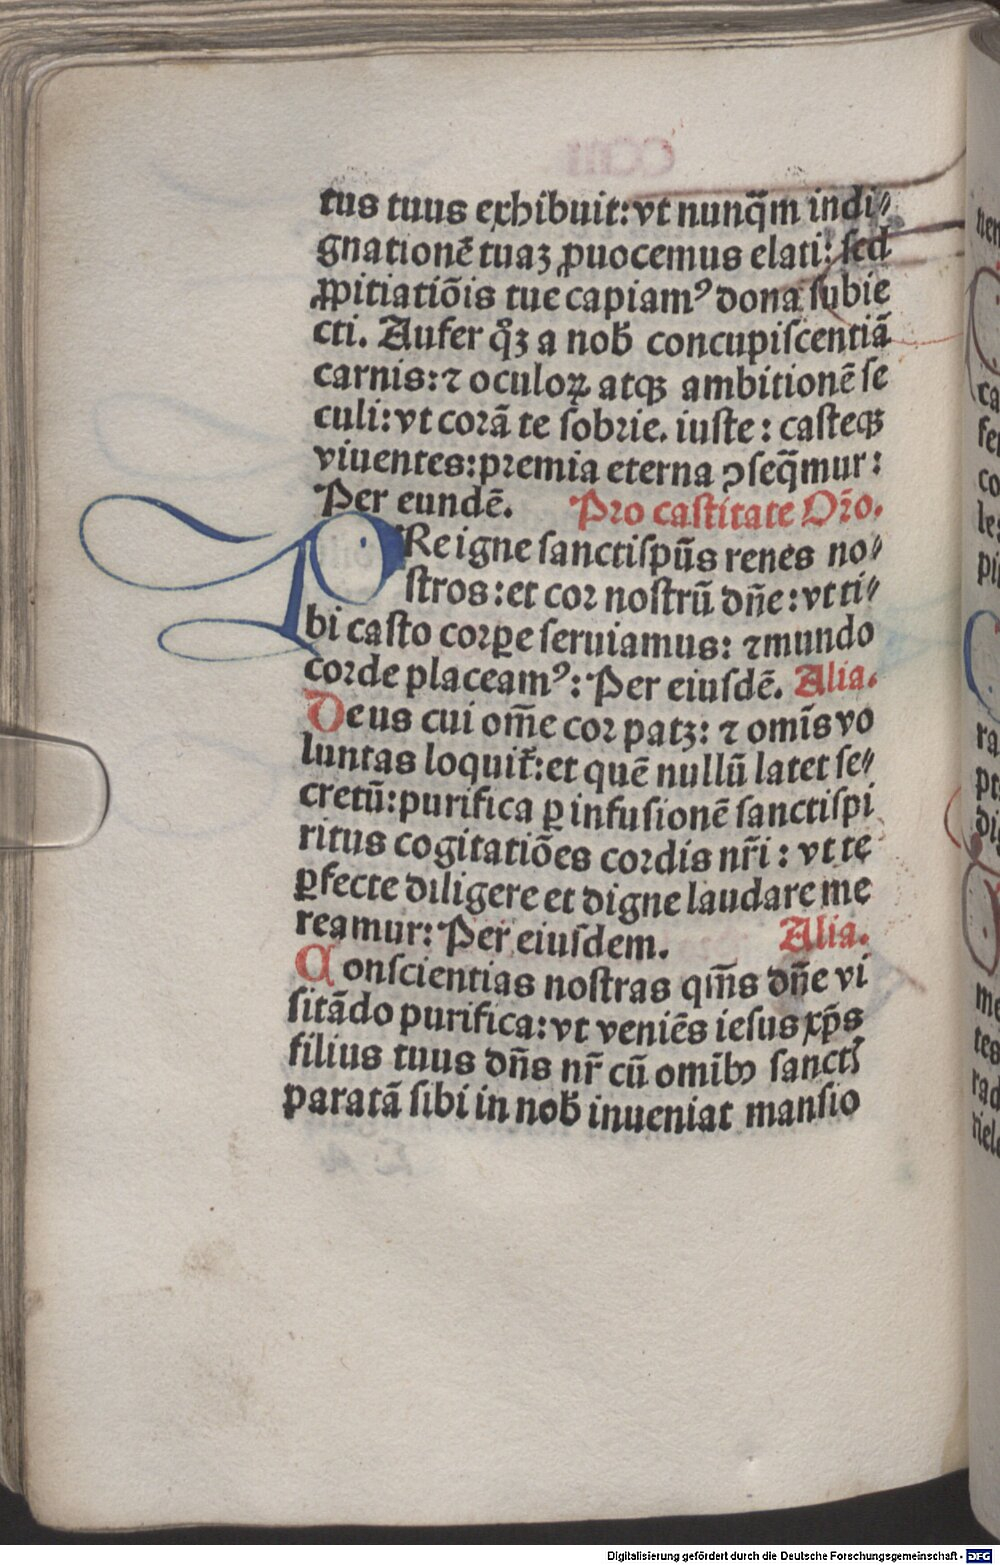 tus tuus exhibuit: vt nunq̃m indi⸗
gnationẽ tuaʒ ꝓuocemus elati: ſed
ꝓpitiatiõis tue capiamꝰ dona ſubie
cti. Aufer q̊ʒ a nob̃ concupiſcentiã
carnis: ⁊ oculoꝝ atqꝫ ambitionẽ ſe
culi: vt corã te ſobrie. iuſte: caſteqꝫ
viuentes: premia eterna ↄſeq̃mur:
Per eundẽ. Pro caſtitate Or̃o.
PRe igne ſanctiſpũs renes no⸗
ſtros: et cor noſtrũ dñe: vt ti⸗
bi caſto corꝑe ſeruiamus: ⁊ mundo
corde placeamꝰ: Per eiuſdẽ. Alia.
Deus cui om̃e cor patꝫ: ⁊ omĩs vo
luntas loquit̃: et quẽ nullũ latet ſe⸗
cretũ: purifica ꝑ infuſionẽ ſanctiſpi
ritus cogitatiões cordis nr̃i: vt te
ꝑfecte diligere et digne laudare me
reamur: Per eiuſdem. Alia.
Conſcientias noſtras qm̃s dñe vi
ſitãdo purifica: vt veniẽs ieſus xp̃s
filius tuus dñs nr̃ cũ omibꝫ ſanctꝭ
paratã ſibi in nob̃ inueniat manſio
Digitalisierung gefördert durch die Deutsche Forschungsgemeinschaft - DFG